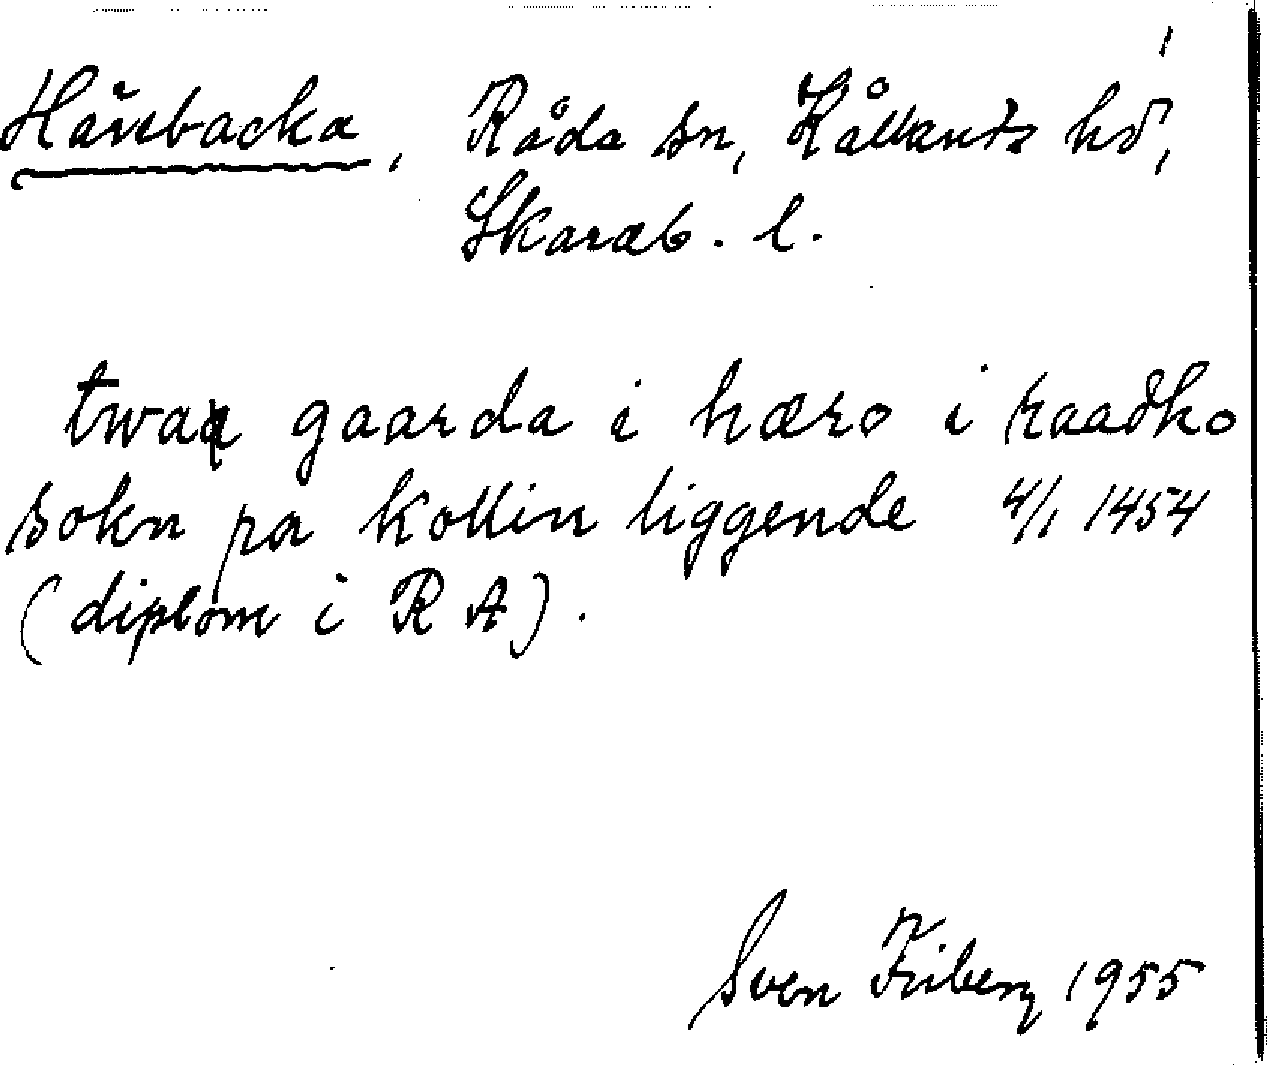 Hånbacka, Råda sn, Kållands hd,
Skarab. l.
twa gaarda i hæro i raadho
sokn pa kollin liggende 4/1 1454
(diplom i RA).
Sven Friberg 1955